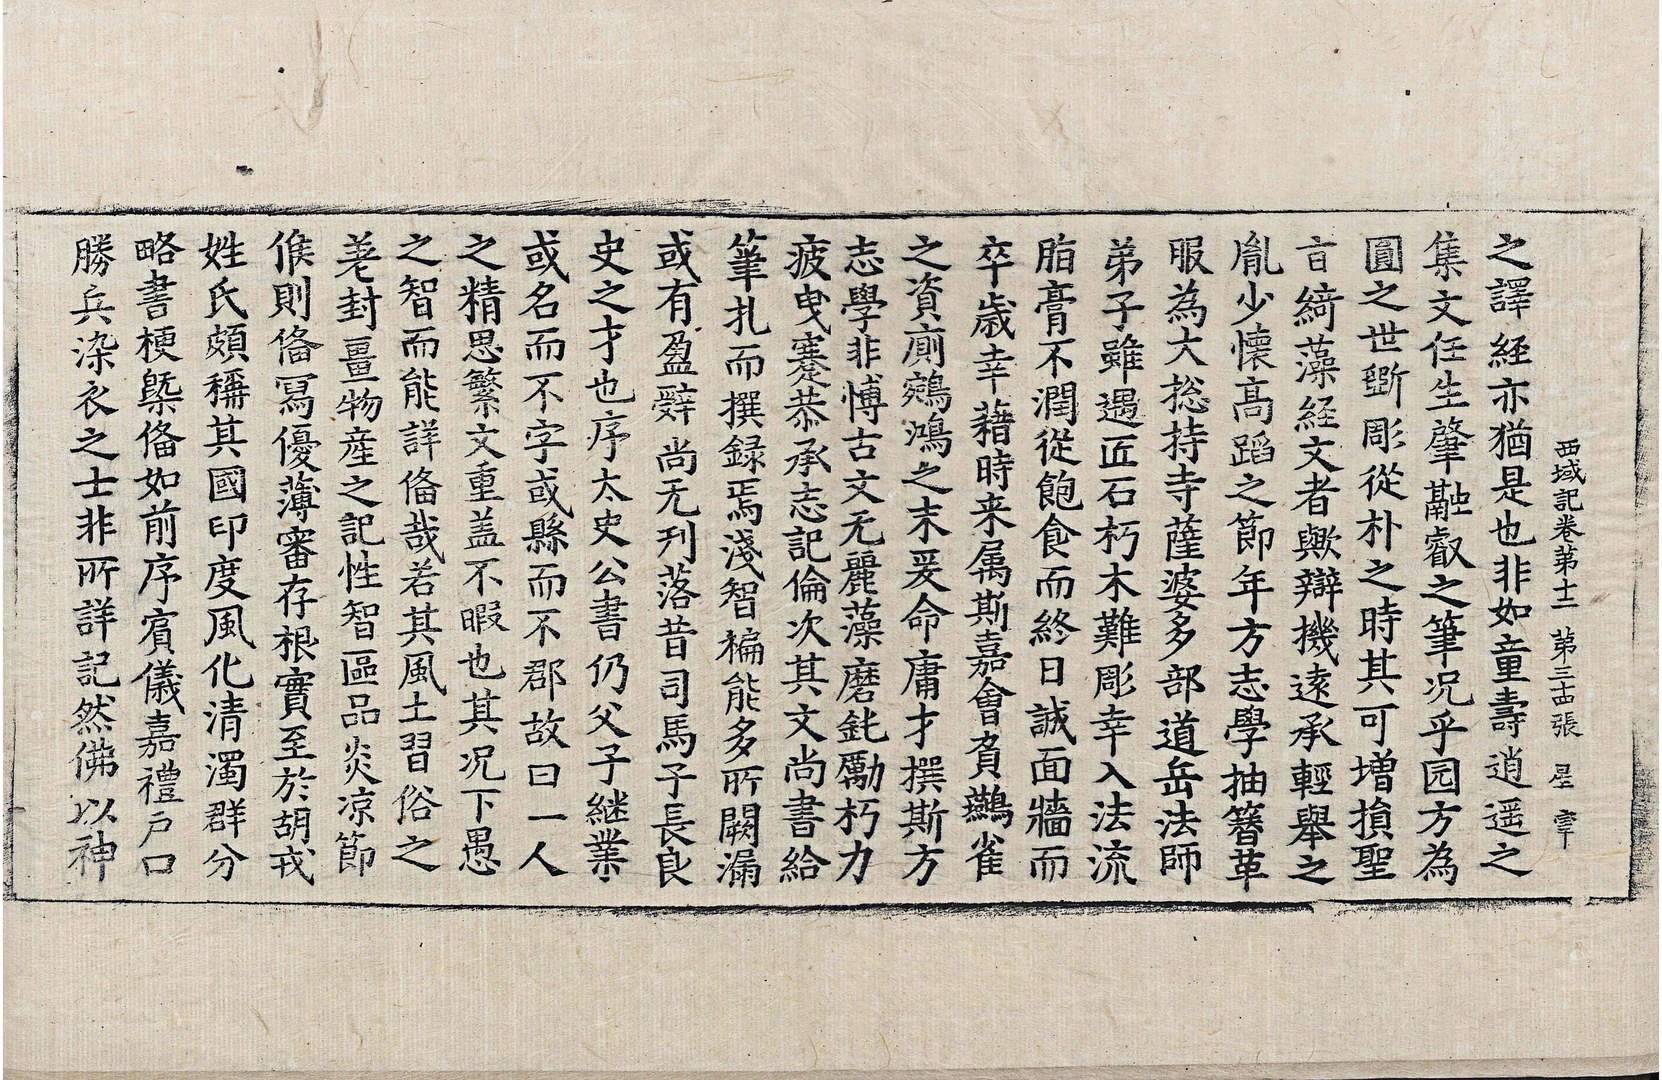 西域記卷第十二 第三十四張 星 宰
之譯經亦猶是也非如童壽逍遥之
集文任生肇融叡之筆况乎园方為
圓之世斵彫從朴之時其可增損聖
㫖綺藻経文者歟辯機逺承輕舉之
胤少懷髙蹈之節年方志學抽簪革
服為大捴持寺薩婆多部道岳法師
弟子雖遇匠石朽木難彫幸入法流
脂膏不潤從飽食而終日誠面牆而
卒歳幸藉時来属斯嘉會負鷰雀
之資厠鵷鴻之末爰命庸才撰斯方
志學非博古文无麗藻磨鈍勵朽力
疲曳蹇恭承志記倫次其文尚書給
筆扎而撰録焉淺智褊能多所闕漏
或有盈辤尚无刋落昔司馬子長良
史之才也序太史公書仍父子継業
或名而不字或縣而不郡故曰一人
之精思繁文重盖不暇也其况下愚
之智而能詳俻哉若其風土習俗之
差封畺物産之記性智區品炎凉節
候則俻冩優薄審存根實至於胡戎
姓氏頗稱其國印度風化清濁群分
略書梗槩俻如前序賔儀嘉禮戸口
勝兵染衣之士非所詳記然佛以神